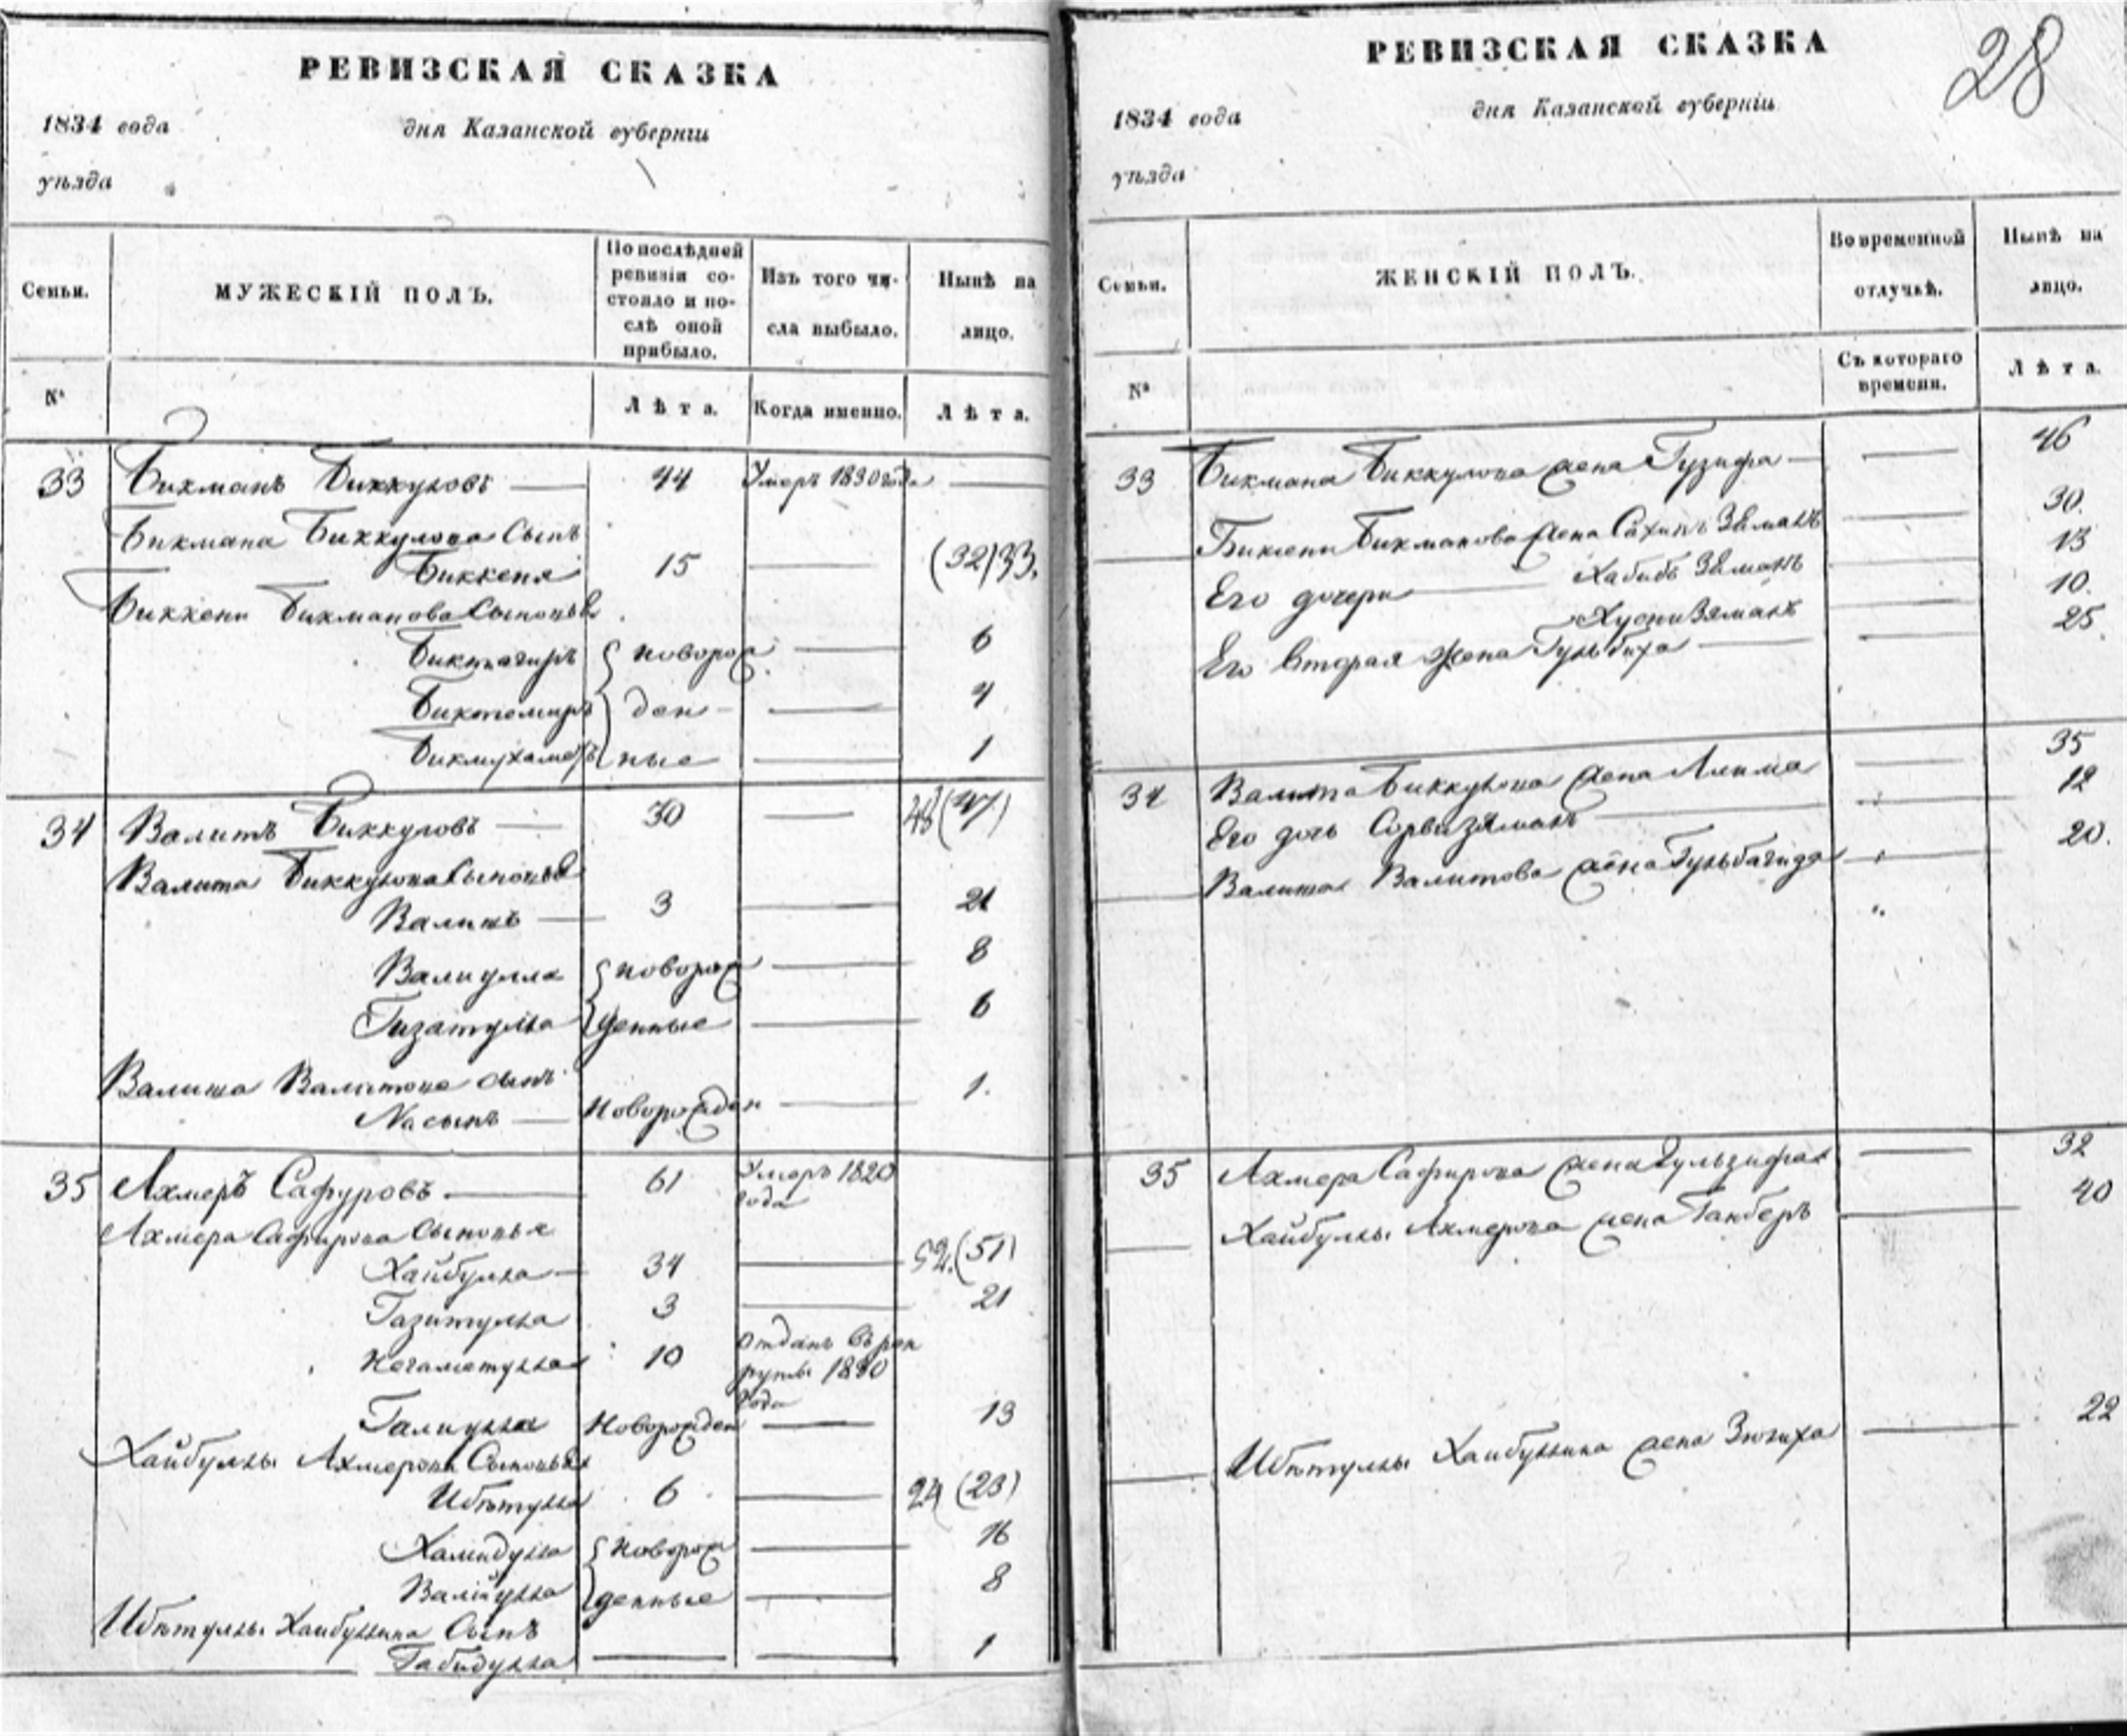 РЕВИЗСКАЯ СКАЗКА
1834 года дня Казанской губерніи
уѣзда
Семьи. МУЖЕСКІЙ ПОЛЪ. По послѣдней ревизіи состояло и послѣ оной прибыло. Изъ того числа выбыло. Нынѣ на лицо.
№ Лѣта. Когда именно. Лѣта.
33 Бикманъ Биккуловъ — 44 Умеръ 1830 года —
Бикмана Биккулова Сынъ
Биккеня 15 — (32) 33.
Биккени Бикманова Сыновья
Биктагиръ новорож — 6
Биктемиръ ден — 4
Бикмухаметъ ные — 1
34 Валитъ Биккуловъ — 30 — 48 (47)
Валита Биккулова Сыновья
Валишъ — 3 — 21
Валиулла новорож — 8
Гизатулла денные — 6
Валиша Валитова сынъ
Насыпъ — Новорожден — 1.
35 Ахмеръ Сафуровъ — 61 Умеръ 1820
года
Ахмера Сафурова Сыновья
Хайбулла — 34 — 52. (51)
Газитулла 3 — 21
Негаметулла 10 Отданъ въ рек
руты 1830
года
Галиулла Новорожден — 13
Хайбуллы Ахмерова Сыновья
Ибетулла 6 — 24 (23)
Хамидулла новорож — 16
Валиулла денные — 8
Ибетуллы Хайбуллина Сынъ
Габидулла — — 1
РЕВИЗСКАЯ СКАЗКА
28
1834 года дня Казанской губерніи
уѣзда
Семьи. ЖЕНСКІЙ ПОЛЪ. Во временной отлучкѣ. Нынѣ на лицо.
№ Съ котораго времени. Лѣта.
33 Бикмана Биккулова жена Гузифа — — 46
Биккени Бикманова жена Сахипъ Земалъ — 30.
Его дочери — Хабибъ Земалъ — 13
Хусни Земалъ — 10.
Его вторая жена Гульбика — — 25
34 Валита Биккулова жена Алима — 35
Его дочь Сарви Земалъ — 12
Валиша Валитова жена Гульбагида — 20.
35 Ахмера Сафурова жена Гульзифа — 32
Хайбуллы Ахмерова жена Ганберъ — 40
Ибетуллы Хайбуллина жена Зюлиха — 22